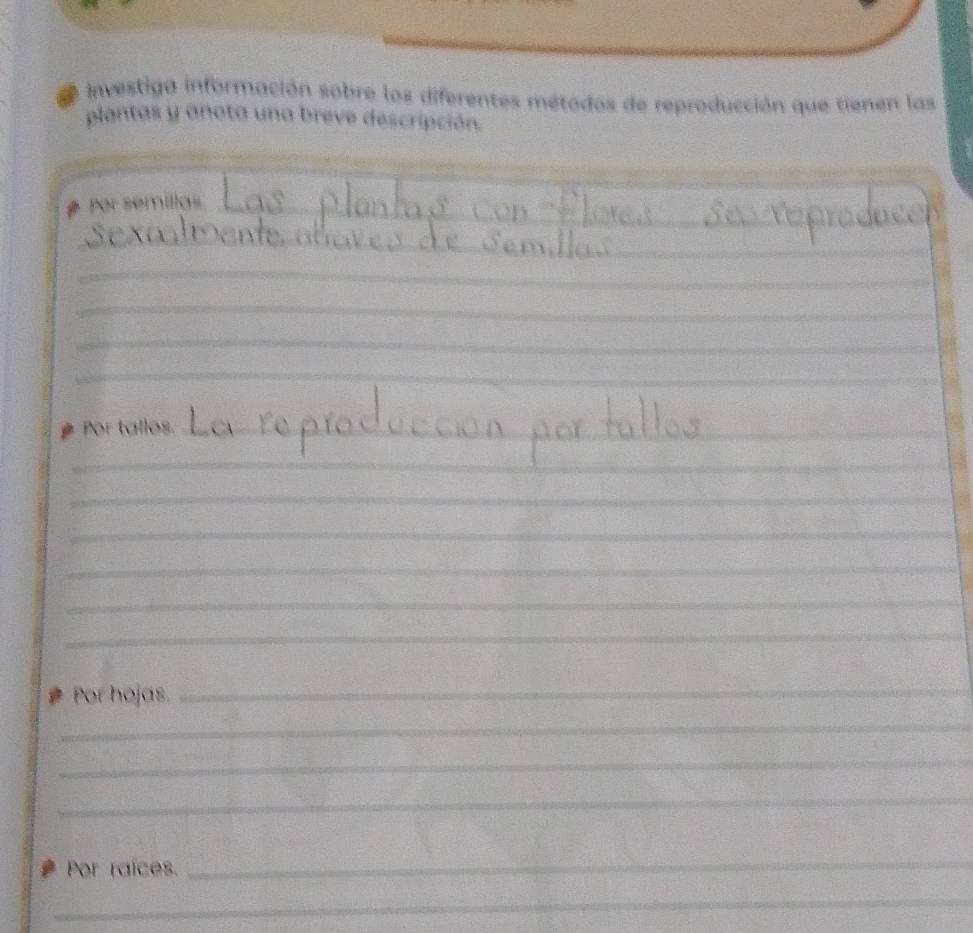 investiga información sobre los diferentes métodos de reproducción que tienen las
plantas y anota una breve descripción.
Por semillas. Las plantas con flores se reproducen
Sexualmente atraves de Semillas
Por tallos. La reproduccion por tallos
Por hojas.
Por raíces.